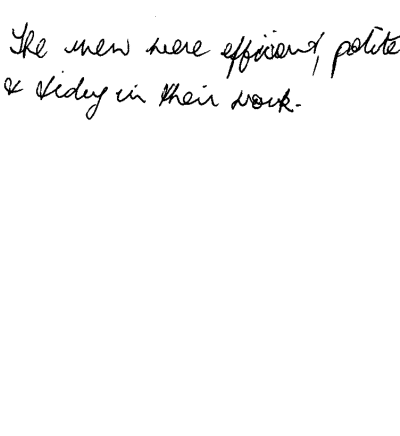 The men were efficient, polite
& tidy in their work.